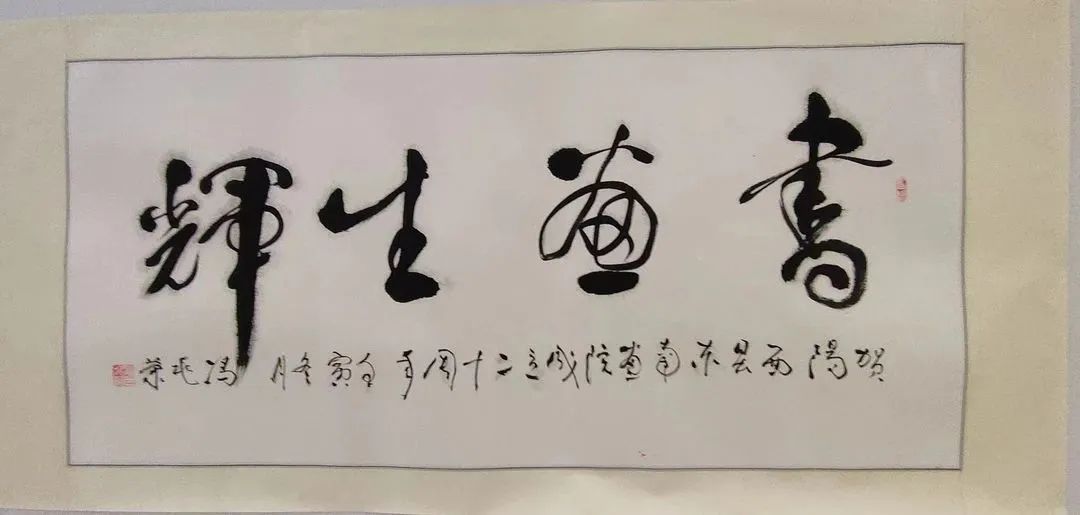 書畫生輝
賀陽西县东南畫院成立二十周年 壬寅冬月 馮兆荣